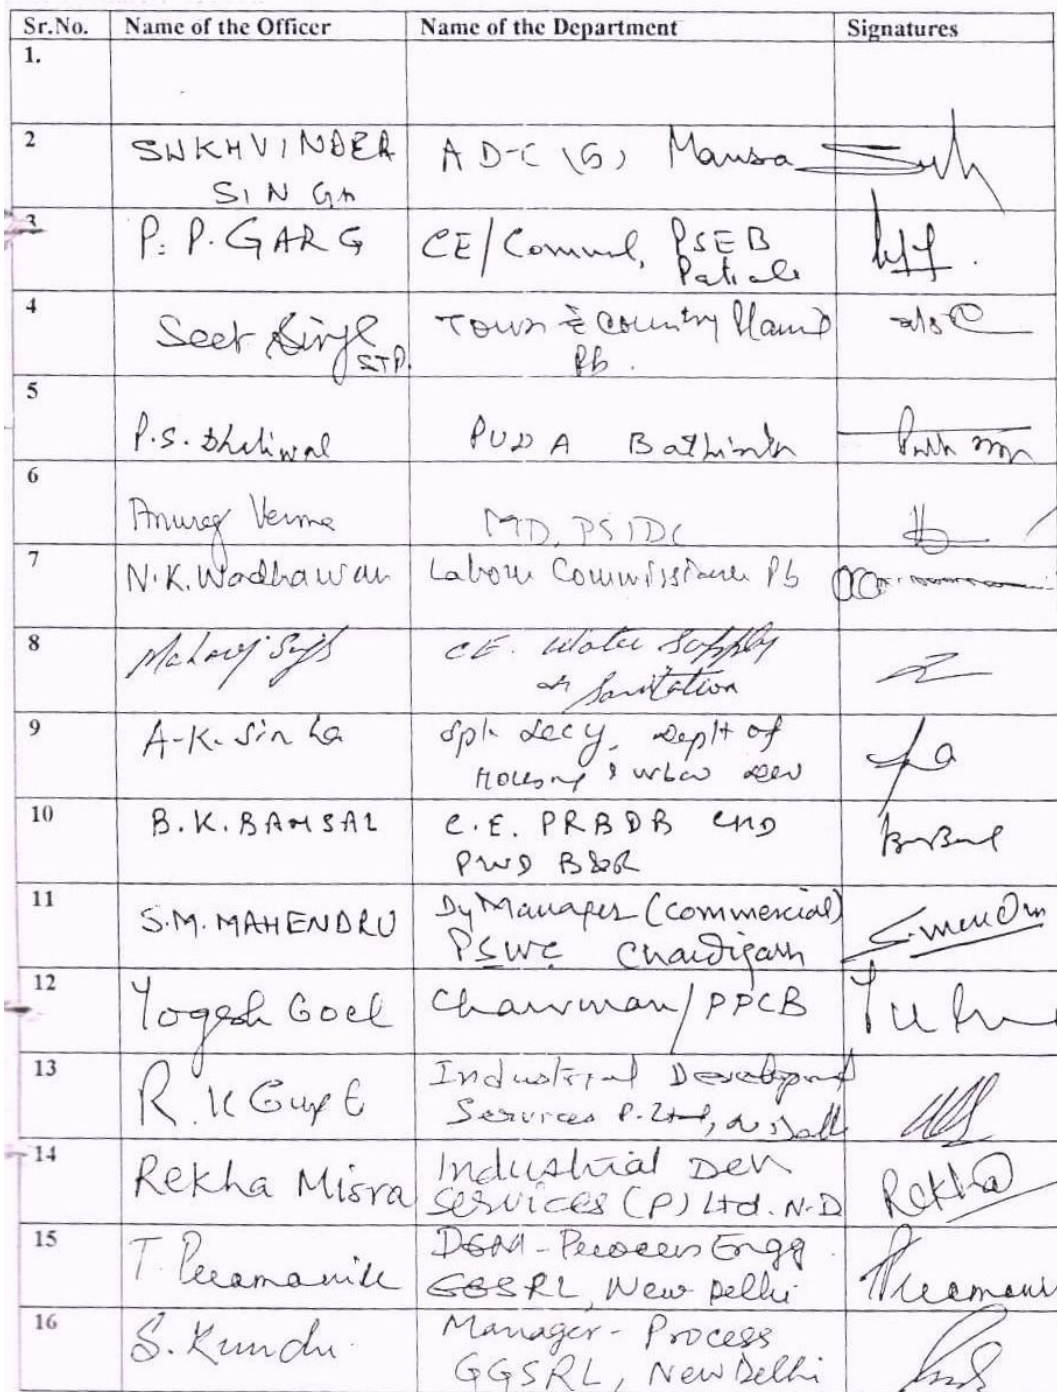 Sr.No. Name of the Officer Name of the Department Signatures
1.
2 SUKHVINDER A D-C (G) Mansa
SINGH
3 P. P. GARG CE/Comml, PSEB
Patiala
4 Singh Town & Country
STP. Pb.
5 P.S. Dhaliwal PUDA Bathinda
6 Anurag Verma MD, PSIDC
7 N.K. Wadhawan Labour Commissioner Pb
8 C.E. Water Supply
Sanitation
9 A-K. Sinha Spl. Secy, Deptt of
Housing & Urban Dev
10 B.K. BANSAL C.E. PRBDB CHD
PWD B&R
11 S.M. MAHENDRU Dy Manager (Commercial)
PSWC Chandigarh
12 Yogesh Goel Chairman/PPCB
13 R. K Gupta Industrial Development
Services P. Ltd, N Delhi
14 Rekha Misra Industrial Dev Rekha
Services (P) Ltd. N.D
15 T. DGM - Process Engg.
GGSRL, New Delhi
16 S. Kundu. Manager - Process
GGSRL, New Delhi